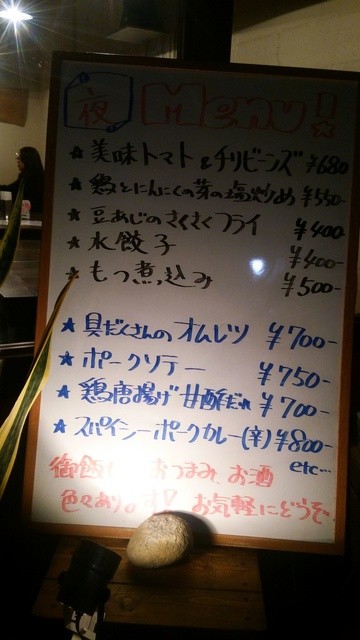 夜 Menu!
★ 美味トマト&チリビーンズ ¥680
★ 鶏とにんにくの芽の塩炒め ¥550-
★ 豆あじのさくさくフライ ¥400-
★ 水餃子 ¥400-
★ もつ煮込み ¥500-
★ 具だくさんのオムレツ ¥700-
★ ポークソテー ¥750-
★ 鶏唐揚げ 甘酢だれ ¥700-
★ スパイシーポークカレー(辛) ¥800-
etc...
御飯 おつまみ お酒
色々あります! お気軽にどうぞ